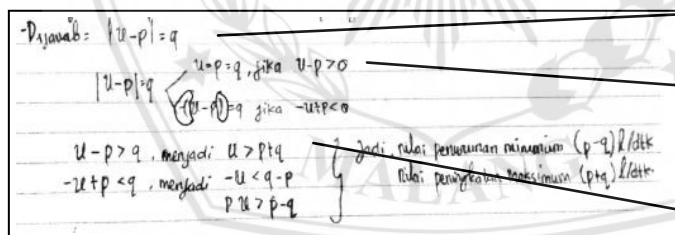 -Dijawab = |u-p|=q
|u-p|=q
u-p=q, jika u-p>0
-(u-p)=q jika -u+p<0
u-p>q, menjadi u>p+q
-u+p<q, menjadi -u<q-p
p u>p-q
Jadi, nilai penurunan minimum (p-q) l/dtk
Nilai peningkatan maksimum (p+q) l/dtk.
MALANG